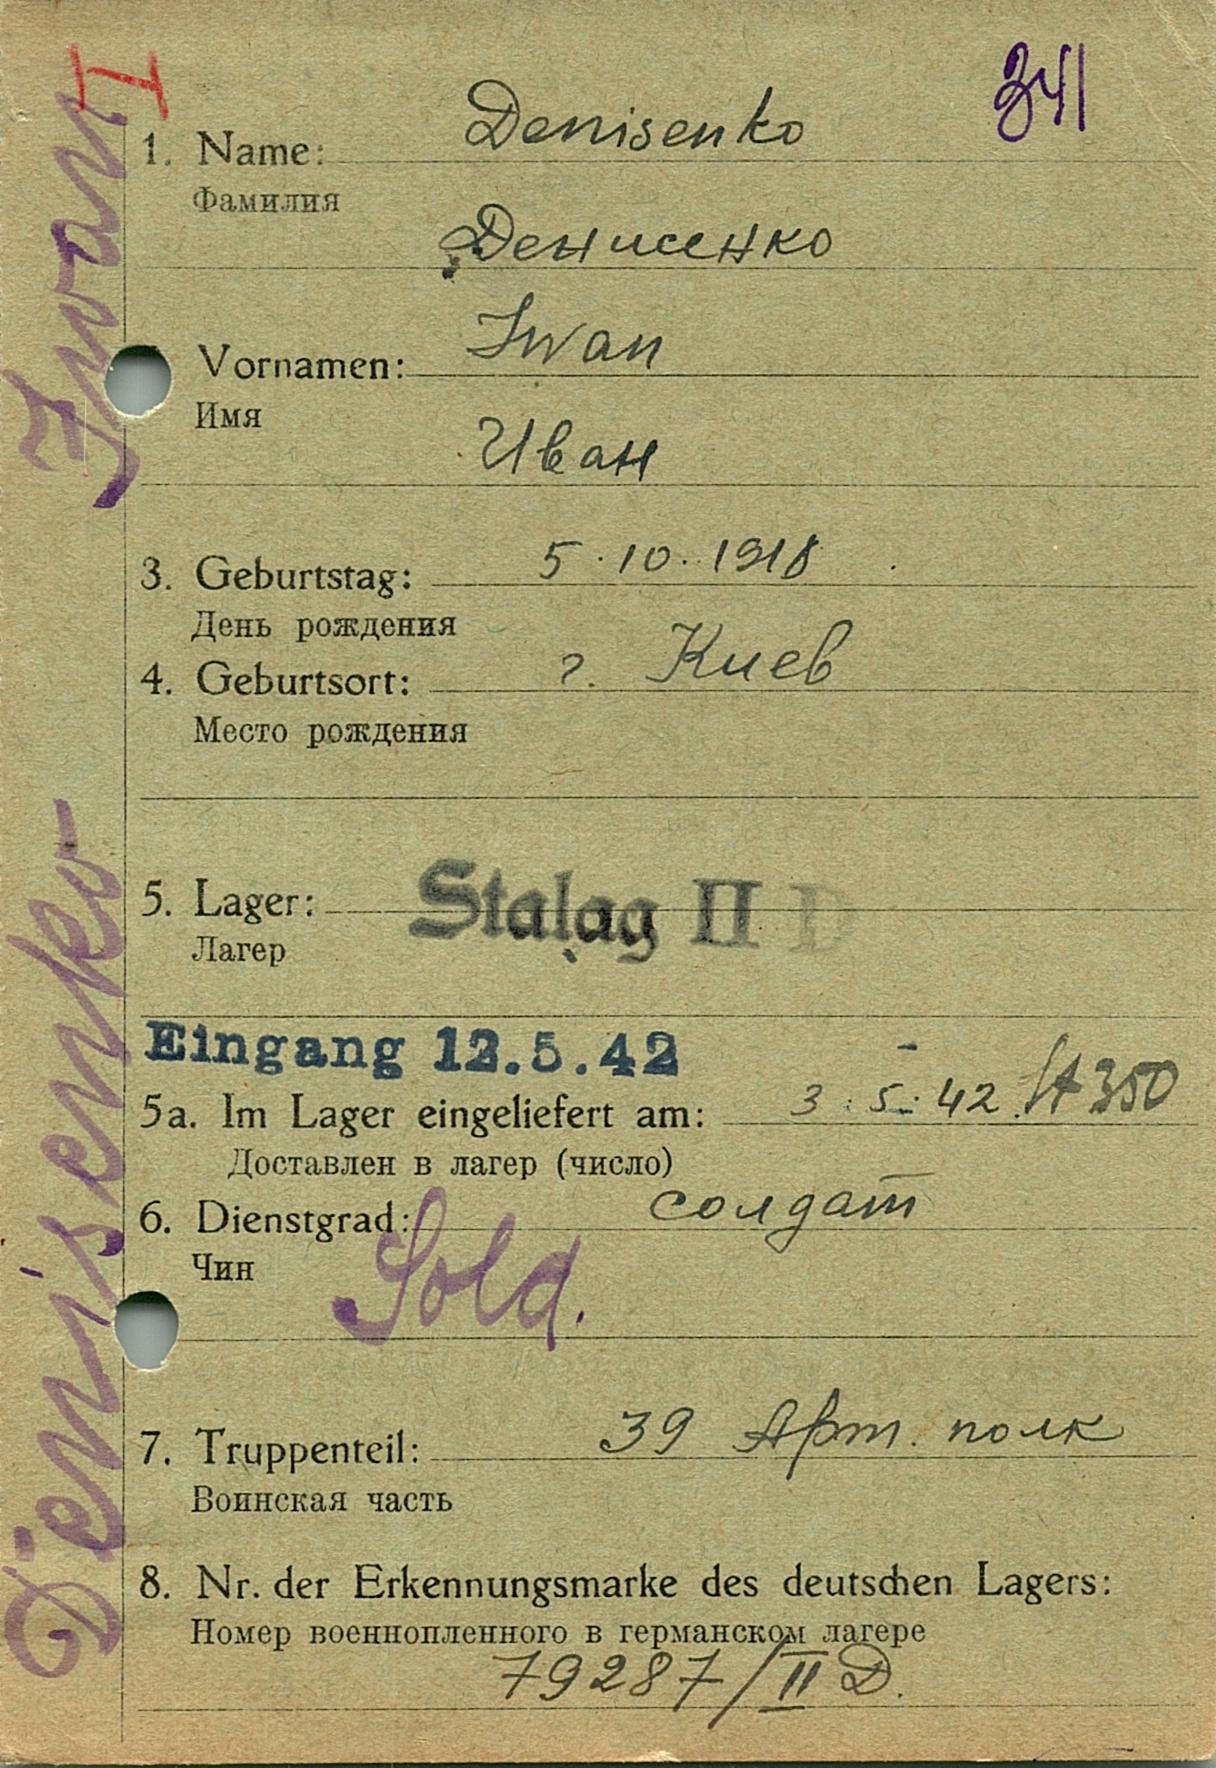 I
341
1. Name: Denisenko
Фамилия
Денисенко
Vornamen: Iwan
Имя
Иван
3. Geburtstag: 5.10.1918
День рождения
4. Geburtsort: г. Киев
Место рождения
5. Lager: Stalag II D
Лагер
Eingang 12.5.42
5a. Im Lager eingeliefert am: 3.5.42 St 350
Доставлен в лагер (число)
6. Dienstgrad: солдат
Чин
Sold.
7. Truppenteil: 39 Арт. полк
Воинская часть
8. Nr. der Erkennungsmarke des deutschen Lagers:
Номер военнопленного в германском лагере
79287/II D.
Denisenko Iwan